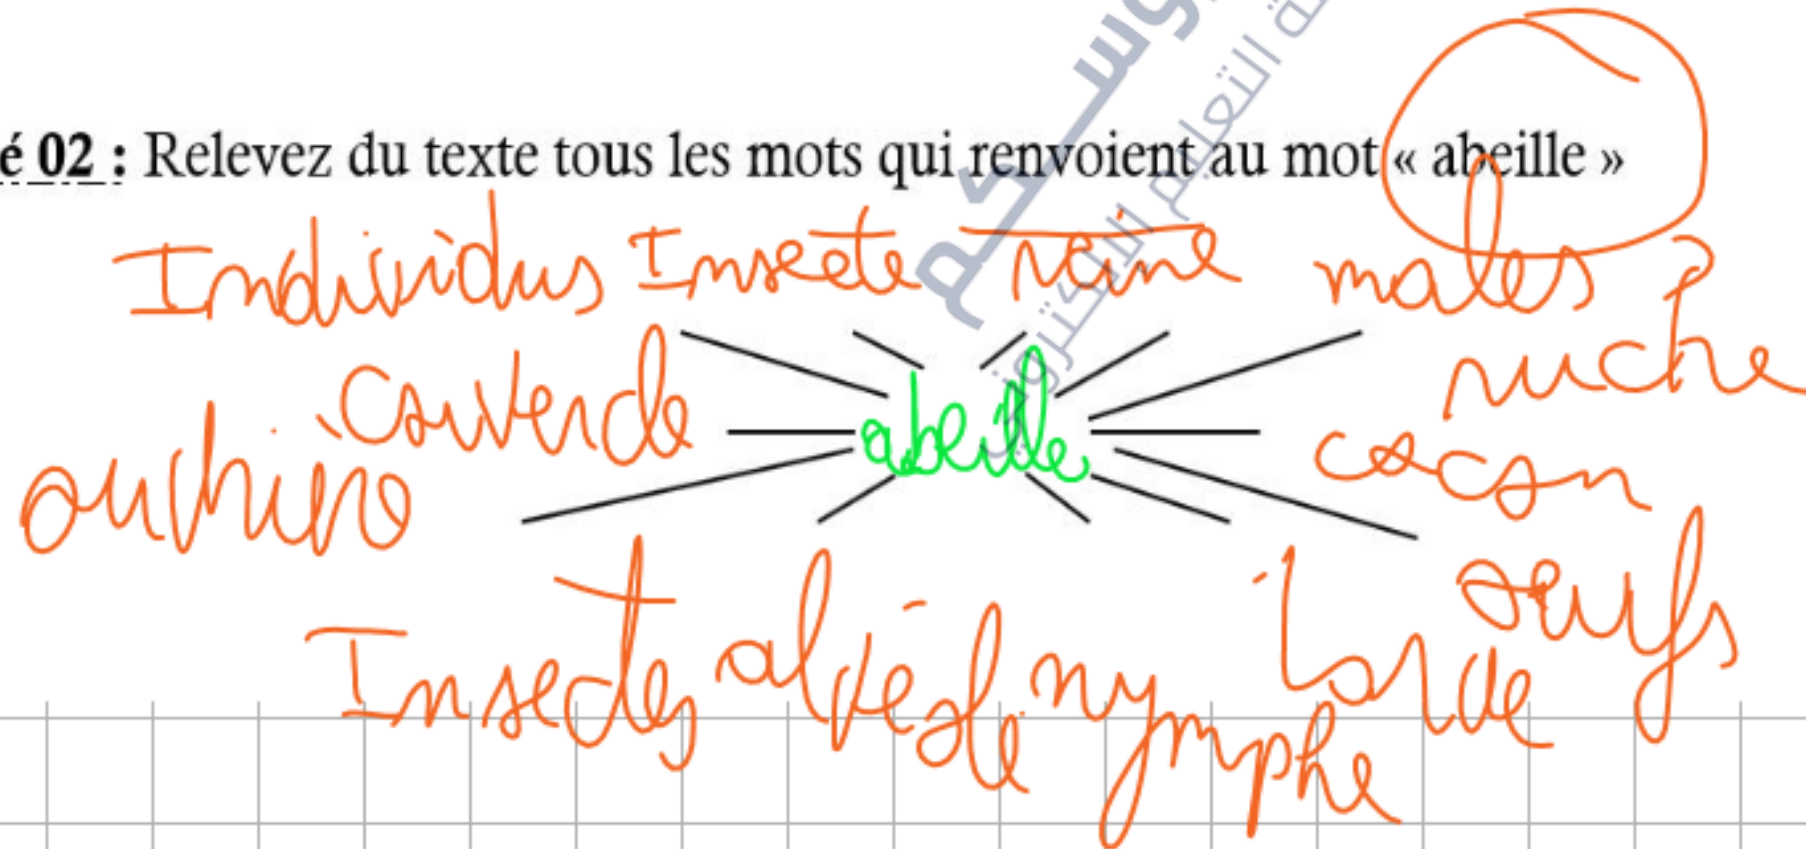 é 02 : Relevez du texte tous les mots qui renvoient au mot « abeille »
Individus Insecte reine males ?
couvercle ruche
abeille
cocon
Insectes alvéole nymphe larve oeufs